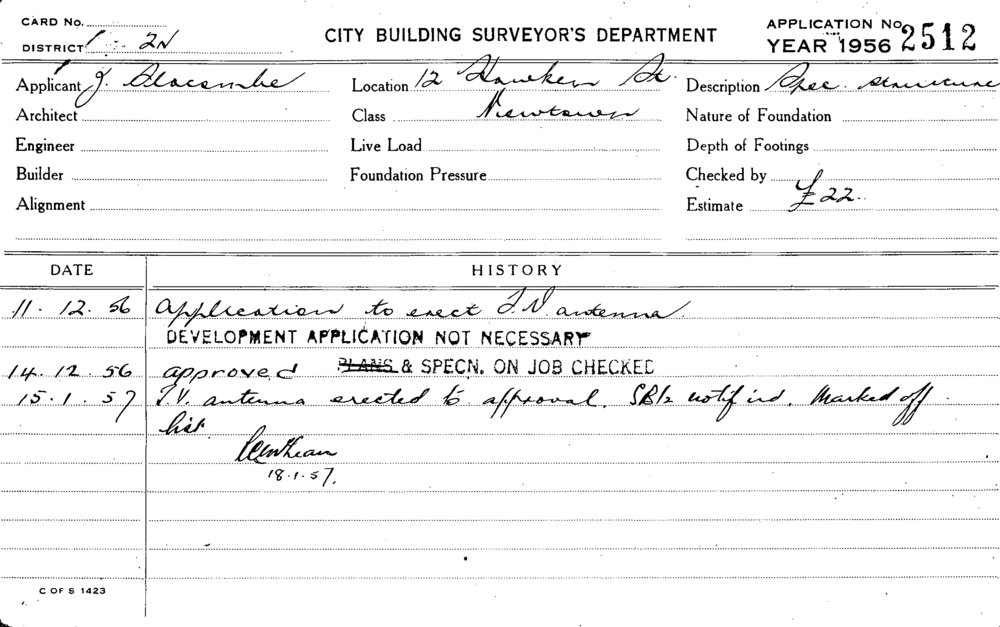 CARD No.
DISTRICT 2N
CITY BUILDING SURVEYOR'S DEPARTMENT
APPLICATION No. 2512
YEAR 1956
Applicant J. Slocombe Location 12 Hawken St. Description Spec. structure
Architect Class Newtown Nature of Foundation
Engineer Live Load Depth of Footings
Builder Foundation Pressure Checked by
Alignment Estimate £22
DATE HISTORY
11.12.56 Application to erect T.V. antenna.
DEVELOPMENT APPLICATION NOT NECESSARY
14.12.56 approved PLANS & SPECN. ON JOB CHECKED
15.1.57 T.V. antenna erected to approval. notified. Marked off
list
18.1.57.
C OF S 1423